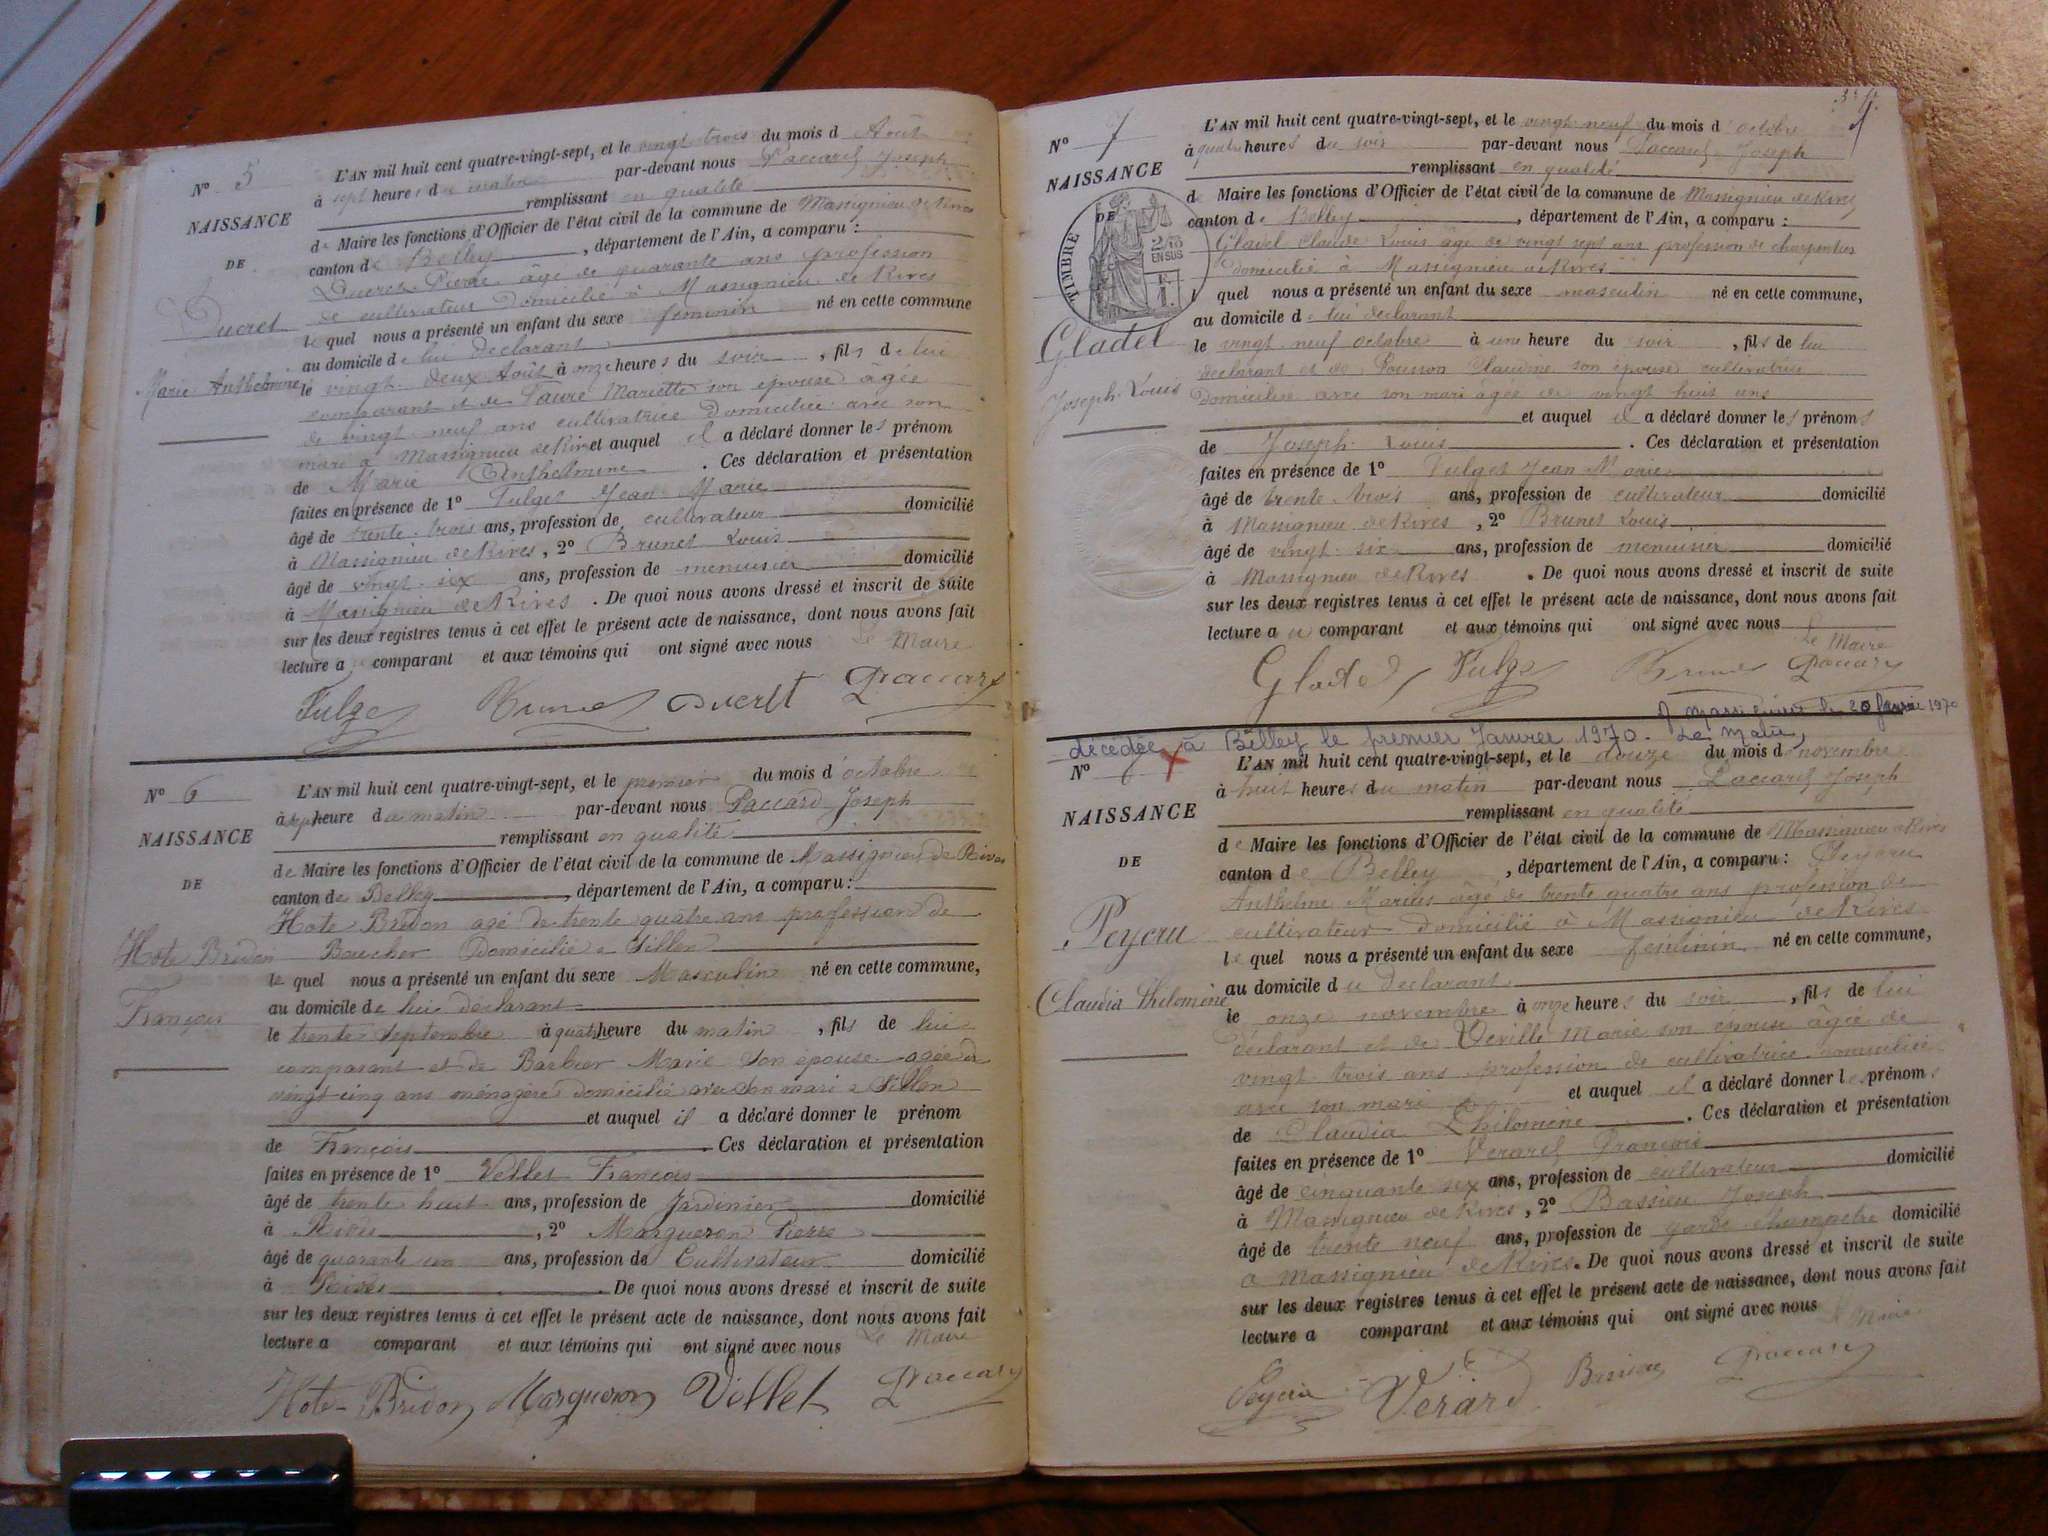 N° 5
NAISSANCE
DE
Ducret
Marie Anthelmine
L'AN mil huit cent quatre-vingt-sept, et le vingt trois du mois d Août
à sept heures du matin par-devant nous Paccard Joseph
remplissant en qualité
de Maire les fonctions d'Officier de l'état civil de la commune de Massignieu de Rives
canton de Belley, département de l'Ain, a comparu :
Ducret Pierre âgé de quarante ans profession
de cultivateur domicilié à Massignieu de Rives
le quel nous a présenté un enfant du sexe feminin né en cette commune
au domicile de lui declarant
le vingt deux Août à onze heures du soir, fils de lui
comparant et de Mariette son epouse âgée
de vingt neuf ans cultivatrice domiciliée avec son
mari à Massignieu de Rives et auquel il a déclaré donner les prénom
de Marie Anthelmine. Ces déclaration et présentation
faites en présence de 1° Jean Marie
âgé de trente trois ans, profession de cultivateur domicilié
à Massignieu de Rives, 2° Brunet Louis
âgé de vingt six ans, profession de menuisier domicilié
à Massignieu de Rives. De quoi nous avons dressé et inscrit de suite
sur les deux registres tenus à cet effet le présent acte de naissance, dont nous avons fait
lecture a comparant et aux témoins qui ont signé avec nous Le Maire
Brunet Ducret Paccard
N° 6
NAISSANCE
DE
Hote Bredon
François
L'AN mil huit cent quatre-vingt-sept, et le premier du mois d'octobre
à sept heure du matin par-devant nous Paccard Joseph
remplissant en qualité
de Maire les fonctions d'Officier de l'état civil de la commune de Massignieu de Rives
canton de Belley, département de l'Ain, a comparu :
Hote Bredon agé de trente quatre ans profession de
Boucher Domicilié a
le quel nous a présenté un enfant du sexe Masculin né en cette commune,
au domicile de lui declarant
le trente septembre à quatre heure du matin, fils de lui
comparant et de Barbier Marie son epouse agée de
vingt cinq ans ménagère domicilié avec son mari a
et auquel il a déclaré donner le prénom
de François. Ces déclaration et présentation
faites en présence de 1° Vellet François
âgé de trente huit ans, profession de Jardinier domicilié
à Rives, 2° Margueron Pierre
âgé de quarante un ans, profession de Cultivateur domicilié
à Rives. De quoi nous avons dressé et inscrit de suite
sur les deux registres tenus à cet effet le présent acte de naissance, dont nous avons fait
lecture a comparant et aux témoins qui ont signé avec nous Le Maire
Hote-Bredon Margueron Vellet Paccard
N° 7
NAISSANCE
DE
TIMBRE
2/10 EN SUS
Gladel
Joseph Louis
L'AN mil huit cent quatre-vingt-sept, et le vingt neuf du mois d'octobre
à quatre heures du soir par-devant nous Paccard Joseph
remplissant en qualité
de Maire les fonctions d'Officier de l'état civil de la commune de Massignieu de Rives
canton de Belley, département de l'Ain, a comparu :
Gladel Claude Louis âgé de vingt sept ans profession de charpentier
domicilié à Massignieu de Rives
l quel nous a présenté un enfant du sexe masculin né en cette commune,
au domicile de lui declarant
le vingt neuf octobre à une heure du soir, fils de lui
declarant et de Claudine son epouse cultivatrice
domiciliée avec son mari âgée de vingt huit ans
et auquel il a déclaré donner les prénoms
de Joseph Louis. Ces déclaration et présentation
faites en présence de 1° Jean Marie
âgé de trente trois ans, profession de cultivateur domicilié
à Massignieu de Rives, 2° Brunet Louis
âgé de vingt six ans, profession de menuisier domicilié
à Massignieu de Rives. De quoi nous avons dressé et inscrit de suite
sur les deux registres tenus à cet effet le présent acte de naissance, dont nous avons fait
lecture au comparant et aux témoins qui ont signé avec nous
Le Maire
Gladel Brunet Paccard
A Massignieu le 20 1970
décédée à Belley le premier Janvier 1970.
N°
NAISSANCE
DE
Peycru
Claudia Philomène
L'AN mil huit cent quatre-vingt-sept, et le douze du mois d novembre
à huit heures du matin par-devant nous Paccard Joseph
remplissant en qualité
de Maire les fonctions d'Officier de l'état civil de la commune de Massignieu de Rives
canton de Belley, département de l'Ain, a comparu : Peycru
Anthelme Marius âgé de trente quatre ans profession de
cultivateur domicilié à Massignieu de Rives
le quel nous a présenté un enfant du sexe feminin né en cette commune,
au domicile du declarant
le onze novembre à onze heures du soir, fils de lui
déclarant et de Marie son épouse âgée de
vingt trois ans profession de cultivatrice domiciliée
avec son mari et auquel il a déclaré donner les prénoms
de Claudia Philomène. Ces déclaration et présentation
faites en présence de 1° Verard François
âgé de cinquante six ans, profession de cultivateur domicilié
à Massignieu de Rives, 2° Bassieu Joseph
âgé de trente neuf ans, profession de garde champetre domicilié
a Massignieu de Rives. De quoi nous avons dressé et inscrit de suite
sur les deux registres tenus à cet effet le présent acte de naissance, dont nous avons fait
lecture a comparant et aux témoins qui ont signé avec nous
Le Maire
Peycru Verard Paccard